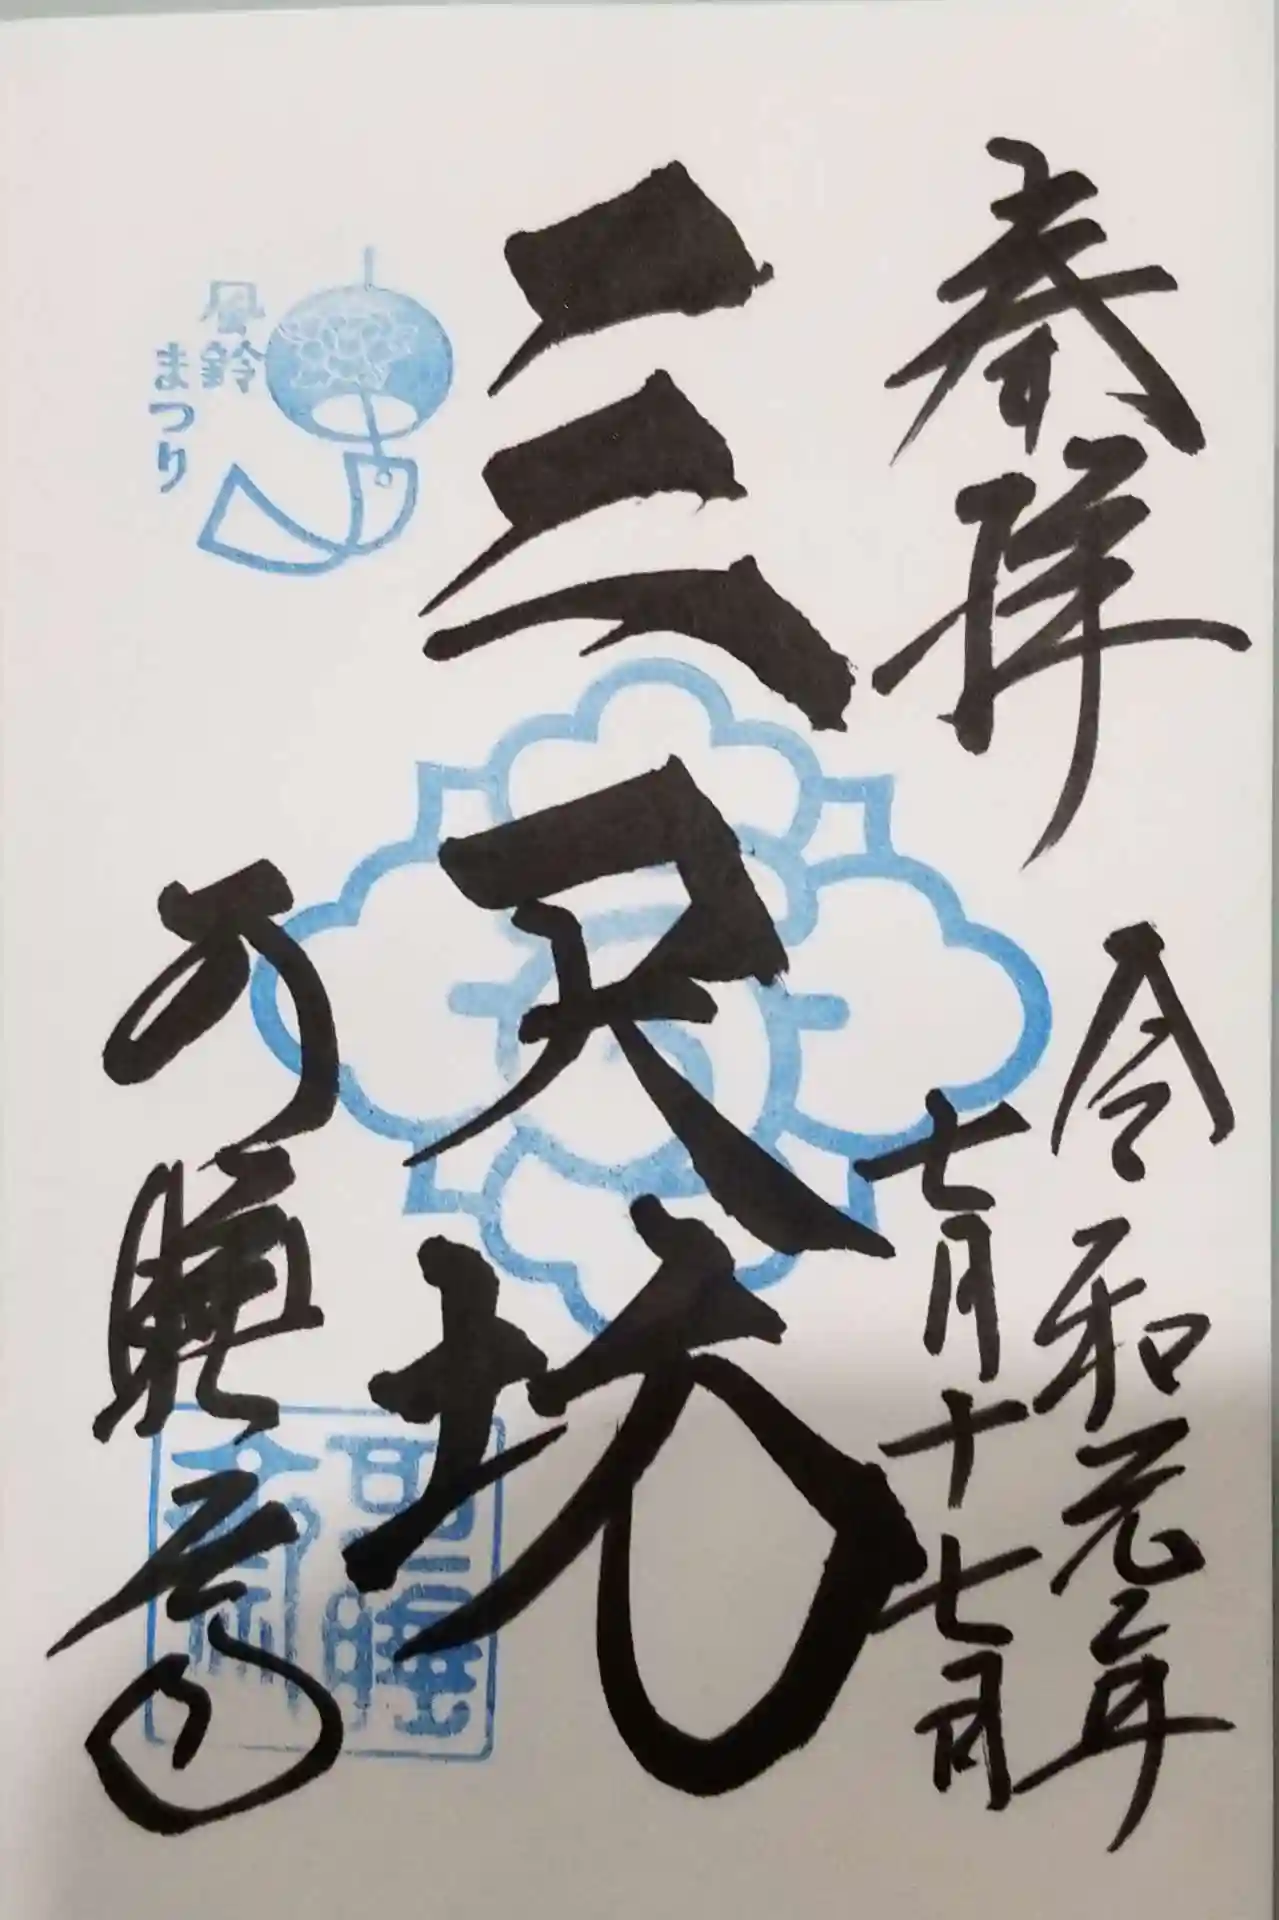 奉拝
令和元年
七月十七日
三尺坊
風鈴
まつり
可睡斎